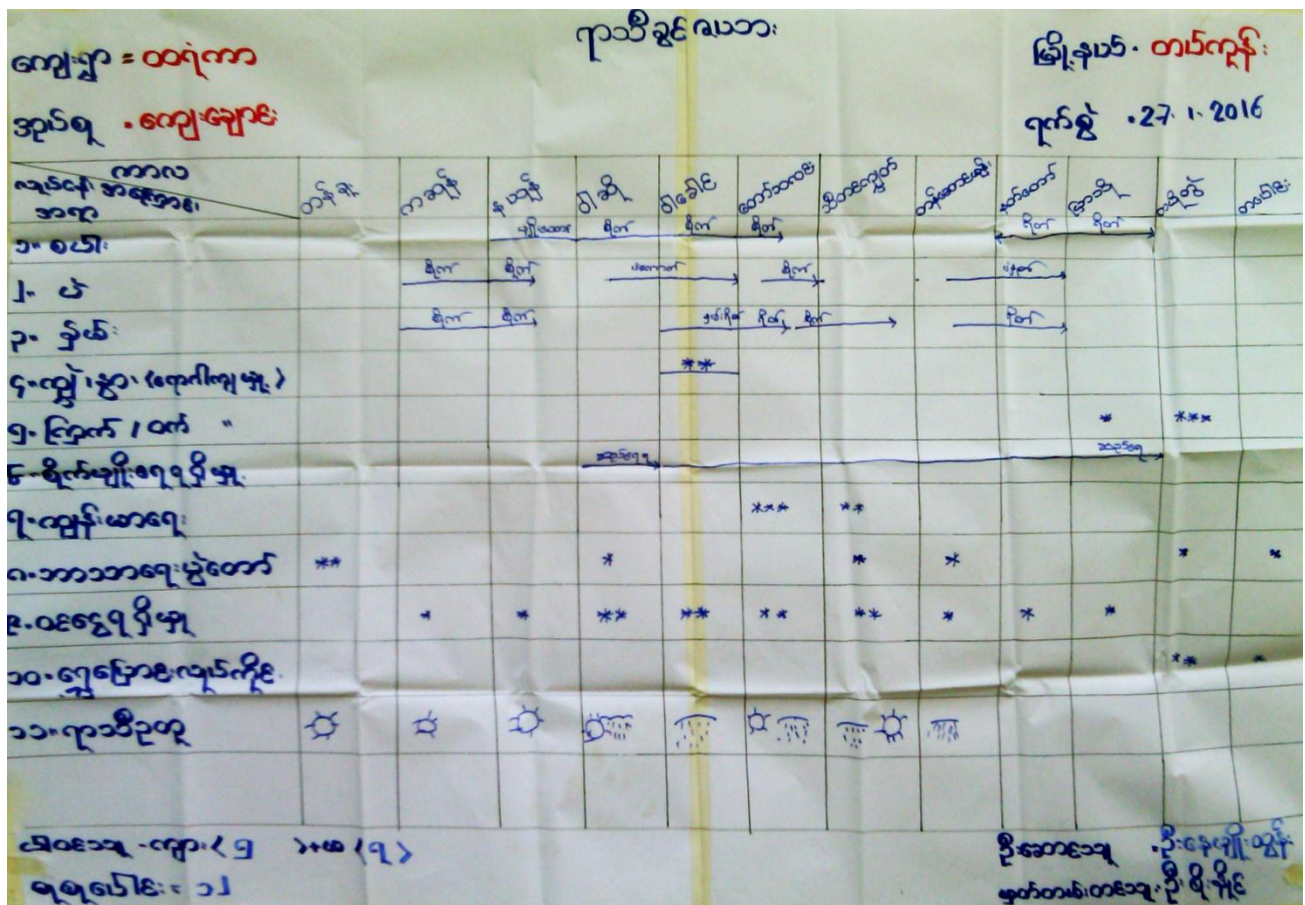 ရာသီခွင်ဇယား
ကျေးရွာ = ထရံကာ
မြို့နယ် - တပ်ကုန်း
အုပ်စု - ကျေးချောင်း
ရက်စွဲ - 27.1.2016
ကာလ
လုပ်ငန်း အကြောင်း
အရာ
တန်ခူး ကဆုန် နယုန် ဝါဆို ဝါခေါင် တော်သလင်း သီတင်းကျွတ် တန်ဆောင်မုန်း နတ်တော် ပြာသို တပို့တွဲ တပေါင်း
၁။ စပါး စိုက် စိုက် ရိတ် ရိတ် ရိတ်
၂။ ပဲ စိုက် စိုက် စိုက်
၃။ နှမ်း စိုက် စိုက် ရိတ် စိုက် ရိတ်
၄။ ကျွဲ၊ နွား (ရောဂါကျမှု)
၅။ ကြက် / ဝက် "
၆။ စိုက်ပျိုးရေရရှိမှု
၇။ ကျန်းမာရေး
၈။ ဘာသာရေးပွဲတော်
၉။ ဝင်ငွေရရှိမှု
၁၀။ ရွှေ့ပြောင်းလုပ်ကိုင်
၁၁။ ရာသီဥတု
ပါဝင်သူ - ကျား (၅) + မ (၇)
စုစုပေါင်း = ၁၂
ဦးဆောင်သူ - ဦးနေမျိုးထွန်း
မှတ်တမ်းတင်သူ - ဦးစိုးနိုင်